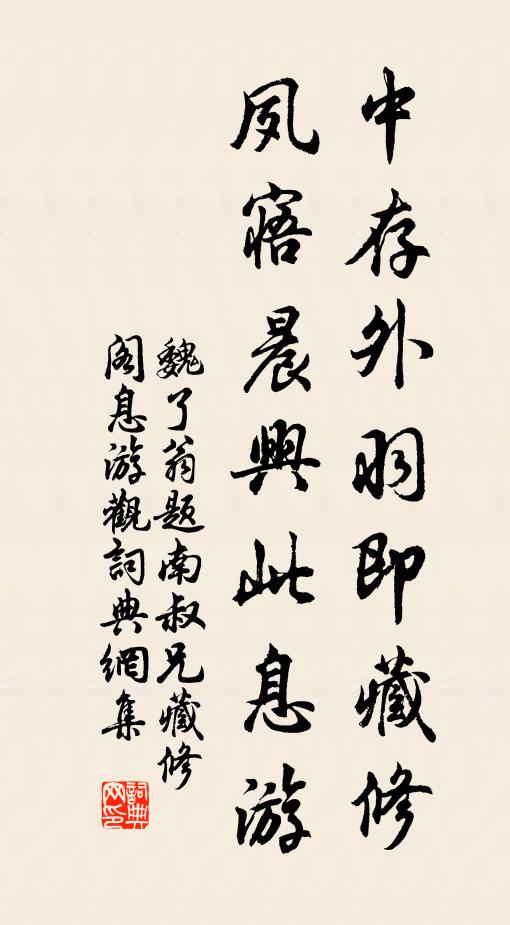 中存外羽即藏修
夙寤晨興此息游
魏了翁題南叔兄藏修
阁息游觀詞典網集
詞典网印